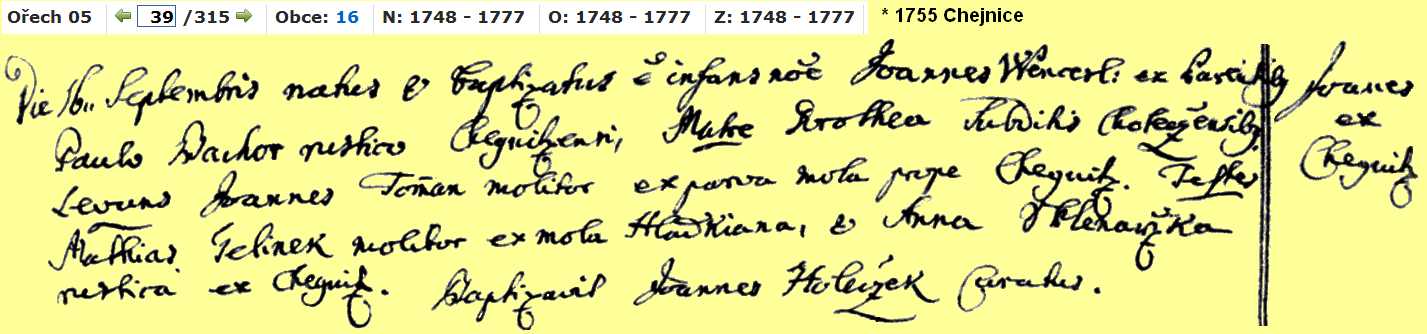 Ořech 05 39 /315 Obce: 16 N: 1748 - 1777 O: 1748 - 1777 Z: 1748 - 1777 * 1755 Chejnice
Die 16. Septembris natus & baptizatus ē infans noē Joannes Wencesl: ex
Paulo Bachor rustico Chegnitzensi, Matre Dorothea Subditis
Levans Joannes Toman molitor ex parva mola prope Chegnitz. Testes
Mathias Jelinek molitor ex mola Hladkiana, & Anna
rustica ex Chegnitz. Baptizavit Joannes Holeczek Curatus.
Joanes
ex
Chegnitz